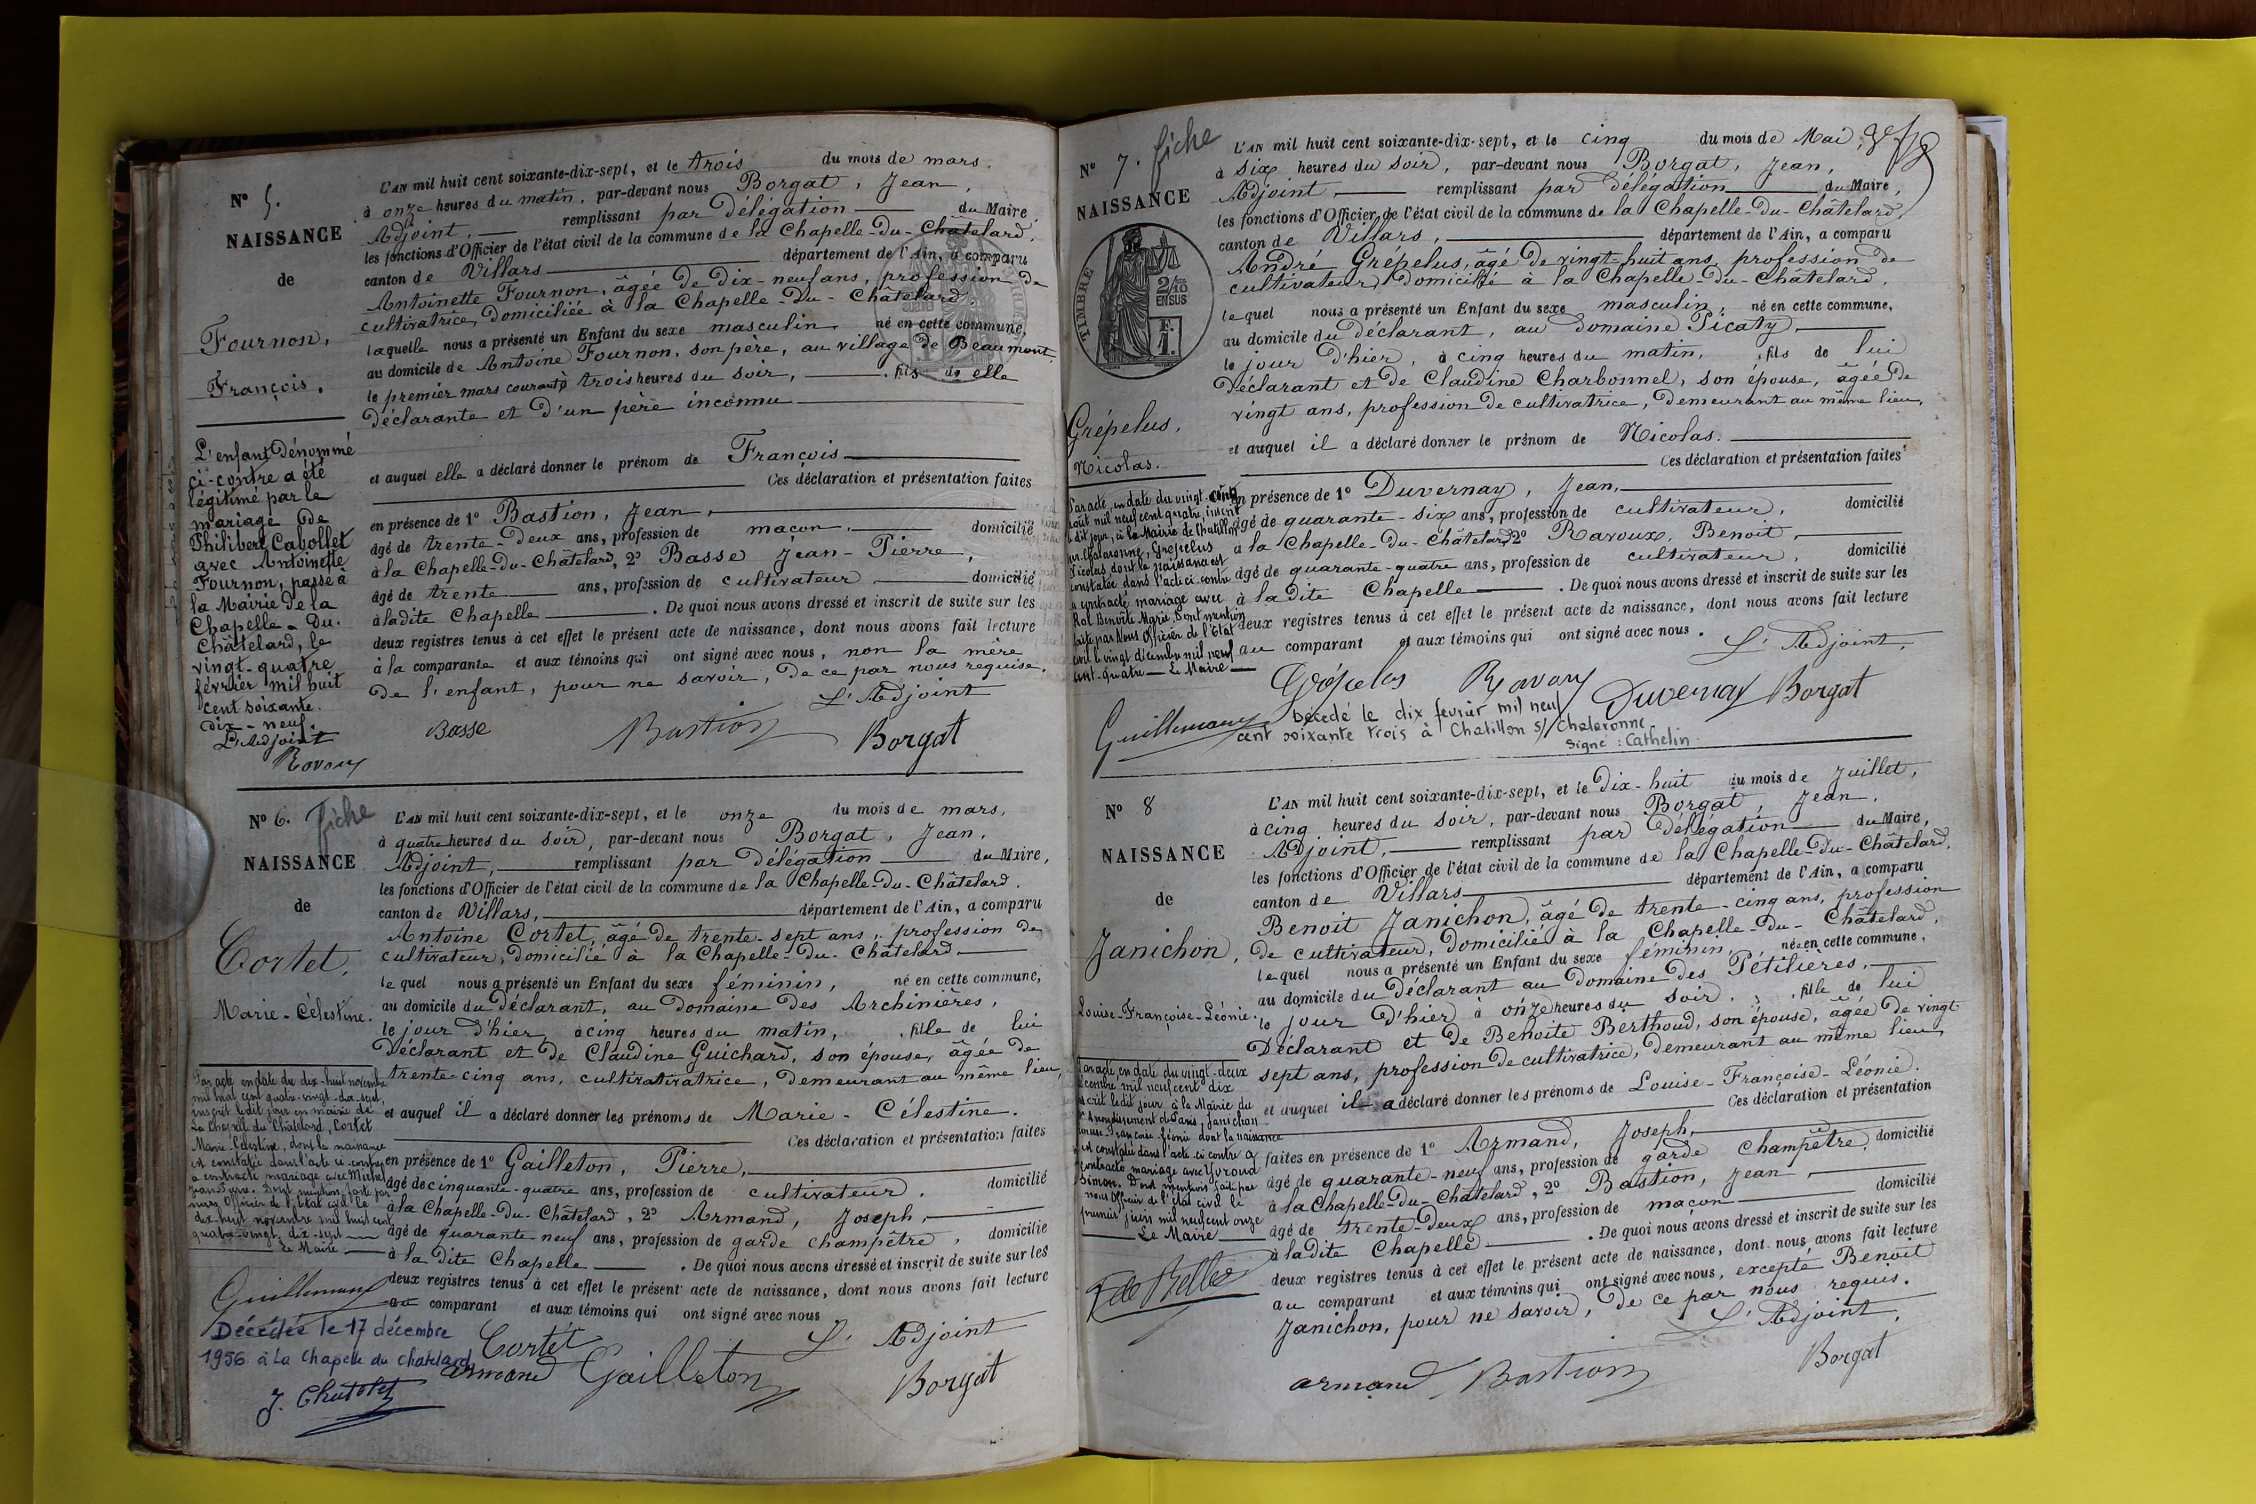 N° 5.
NAISSANCE
de
Fournon,
François.
L'enfant dénommé
ci-contre a été
légitimé par le
mariage de
Philibert Cabollet
avec Antoinette
Fournon, passé à
la Mairie de la
Chapelle-du-
Châtelard, le
vingt-quatre
février mil huit
cent soixante-
dix-neuf.
L'Adjoint
Ravoux
L'AN mil huit cent soixante-dix-sept, et le trois du mois de mars.
à onze heures du matin, par-devant nous Borgat, Jean,
Adjoint, remplissant par délégation du Maire,
les fonctions d'Officier de l'état civil de la commune de la Chapelle-du-Châtelard,
canton de Villars département de l'Ain, a comparu
Antoinette Fournon, âgée de dix-neuf ans, profession de
cultivatrice, domiciliée à la Chapelle-du-Châtelard,
laquelle nous a présenté un Enfant du sexe masculin né en cette commune,
au domicile de Antoine Fournon, son père, au village de Beaumont,
le premier mars courant à trois heures du soir, fils de elle
déclarante et d'un père inconnu
et auquel elle a déclaré donner le prénom de François
Ces déclaration et présentation faites
en présence de 1° Bastion, Jean,
âgé de trente-deux ans, profession de maçon, domicilié
à la Chapelle-du-Châtelard, 2° Basse Jean-Pierre,
âgé de trente ans, profession de cultivateur domicilié
à la dite Chapelle . De quoi nous avons dressé et inscrit de suite sur les
deux registres tenus à cet effet le présent acte de naissance, dont nous avons fait lecture
à la comparante et aux témoins qui ont signé avec nous, non la mère
de l'enfant, pour ne savoir, de ce par nous requise.
L'Adjoint
Basse Bastion Borgat
N° 6. fiche
NAISSANCE
de
Cortet,
Marie-Célestine.
Par acte en date du dix-huit novembre
mil huit cent quatre-vingt-dix-sept,
inscrit ledit jour en mairie de
La Chapelle du Châtelard, Cortet
Marie-Célestine, dont la naissance
est constatée dans l'acte ci-contre
a contracté mariage avec Michel
Dont mention faite par
nous Officier de l'état civil le
dix-huit novembre mil huit cent
quatre-vingt-dix-sept
Le Maire
Guillemaux
Décédée le 17 décembre
1956 à La Chapelle du Chatelard
L'AN mil huit cent soixante-dix-sept, et le onze du mois de mars,
à quatre heures du soir, par-devant nous Borgat, Jean,
Adjoint, remplissant par délégation du Maire,
les fonctions d'Officier de l'état civil de la commune de la Chapelle-du-Châtelard.
canton de Villars, département de l'Ain, a comparu
Antoine Cortet, âgé de trente-sept ans, profession de
cultivateur, domicilié à la Chapelle-du-Châtelard
lequel nous a présenté un Enfant du sexe féminin, né en cette commune,
au domicile du déclarant, au domaine des Archinières,
le jour d'hier, à cinq heures du matin, fille de lui
déclarant et de Claudine Guichard, son épouse, âgée de
trente-cinq ans, cultivativatrice, demeurant au même lieu,
et auquel il a déclaré donner les prénoms de Marie-Célestine.
Ces déclaration et présentation faites
en présence de 1° Gailleton, Pierre,
âgé de cinquante-quatre ans, profession de cultivateur, domicilié
à la Chapelle-du-Châtelard, 2° Armand, Joseph,
âgé de quarante-neuf ans, profession de garde champêtre, domicilié
à la dite Chapelle . De quoi nous avons dressé et inscrit de suite sur les
deux registres tenus à cet effet le présent acte de naissance, dont nous avons fait lecture
au comparant et aux témoins qui ont signé avec nous
L'Adjoint
Cortet armand Gailleton Borgat
N° 7. fiche
NAISSANCE
TIMBRE
ENSUS
Grépelus,
Nicolas.
Par acte en date du vingt-cinq
août mil neuf cent quatre, inscrit
ledit jour, à la Mairie de Chatillon
sur Chalaronne, Grépelus
Nicolas dont la naissance est
constatée dans l'acte ci-contre
a contracté mariage avec
Rol Benoite Marie, Dont mention
faite par Nous Officier de l'Etat
civil le vingt décembre mil neuf
cent-quatre Le Maire
Guillemaux
L'AN mil huit cent soixante-dix-sept, et le cinq du mois de Mai,
à six heures du soir, par-devant nous Borgat, Jean,
Adjoint remplissant par délégation du Maire,
les fonctions d'Officier de l'état civil de la commune de la Chapelle-du-Châtelard,
canton de Villars, département de l'Ain, a comparu
André Grépelus, âgé de vingt-huit ans, profession de
cultivateur, domicilié à la Chapelle-du-Châtelard,
lequel nous a présenté un Enfant du sexe masculin, né en cette commune,
au domicile du déclarant, au domaine Picaty,
le jour d'hier, à cinq heures du matin, fils de lui
déclarant et de Claudine Charbonnel, son épouse, âgée de
vingt ans, profession de cultivatrice, demeurant au même lieu,
et auquel il a déclaré donner le prénom de Nicolas.
Ces déclaration et présentation faites
en présence de 1° Duvernay, Jean,
âgé de quarante-six ans, profession de cultivateur, domicilié
à la Chapelle-du-Châtelard, 2° Ravoux, Benoit,
âgé de quarante-quatre ans, profession de cultivateur, domicilié
à la dite Chapelle . De quoi nous avons dressé et inscrit de suite sur les
deux registres tenus à cet effet le présent acte de naissance, dont nous avons fait lecture
au comparant et aux témoins qui ont signé avec nous. L'Adjoint,
Grépelus Ravoux Duvernay Borgat
Décédé le dix fevrier mil neuf
cent soixante trois à Chatillon s/ Chalaronne
Signé : Cathelin
N° 8
NAISSANCE
de
Janichon,
Louise-Françoise-Léonie.
Par acte en date du vingt-deux
décembre mil neuf cent dix
inscrit ledit jour à la Mairie du
arrondissement de Paris, Janichon
Louise Françoise Léonie dont la naissance
est constatée dans l'acte ci-contre a
contracté mariage avec Giroud
Simon. Dont mention faite par
nous Officier de l'état civil le
premier juin mil neuf cent onze
Le Maire
L'AN mil huit cent soixante-dix-sept, et le dix-huit du mois de juillet,
à cinq heures du soir, par-devant nous Borgat, Jean,
Adjoint, remplissant par délégation du Maire,
les fonctions d'Officier de l'état civil de la commune de la Chapelle-du-Châtelard,
canton de Villars département de l'Ain, a comparu
Benoit Janichon, âgé de trente-cinq ans, profession
de cultivateur, domicilié à la Chapelle-du-Châtelard,
lequel nous a présenté un Enfant du sexe féminin, née en cette commune,
au domicile du déclarant au domaine des Pétilières,
le jour d'hier à onze heures du soir, fille de lui
déclarant et de Benoite Berthoud, son épouse, âgée de vingt-
sept ans, profession de cultivatrice, demeurant au même lieu,
et auquel il a déclaré donner les prénoms de Louise-Françoise-Léonie.
Ces déclaration et présentation
faites en présence de 1° Armand, Joseph,
âgé de quarante-neuf ans, profession de garde champêtre, domicilié
à la Chapelle-du-Châtelard, 2° Bastion, Jean
âgé de trente-deux ans, profession de maçon domicilié
à la dite Chapelle . De quoi nous avons dressé et inscrit de suite sur les
deux registres tenus à cet effet le présent acte de naissance, dont nous avons fait lecture
au comparant et aux témoins qui ont signé avec nous, excepté Benoit
Janichon, pour ne savoir, de ce par nous requis.
L'Adjoint,
armand Bastion Borgat